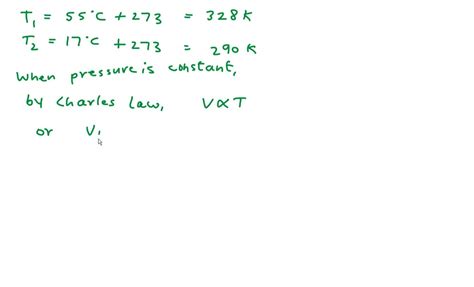 T₁ = 55°C + 273 = 328 K
T₂ = 17°C + 273 = 290 K
When pressure is constant,
by Charles law, V ∝ T
or V₁